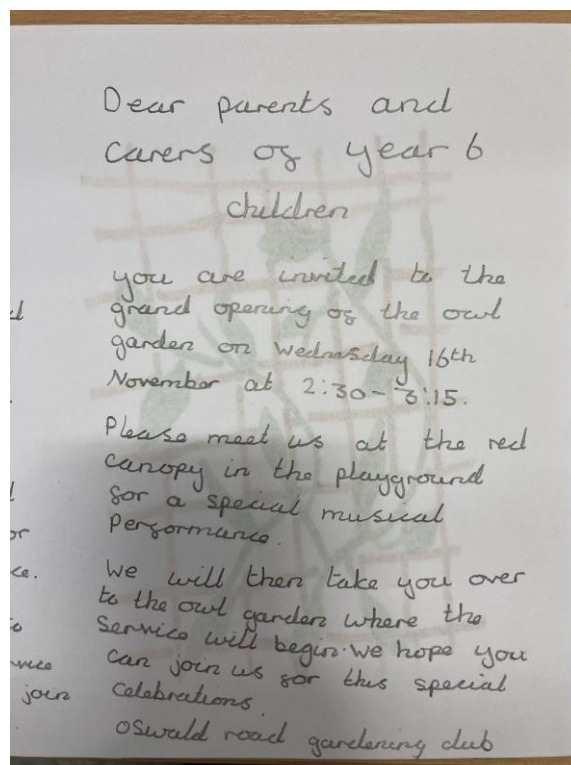 Dear parents and
carers of year 6
children
you are invited to the
grand opening of the owl
garden on Wednesday 16th
November at 2:30-3:15.
Please meet us at the red
canopy in the playground
for a special musical
Performance.
We will then take you over
to the owl garden where the
Service will begin. We hope you
can join us for this special
celebrations.
Oswald road gardening club
join